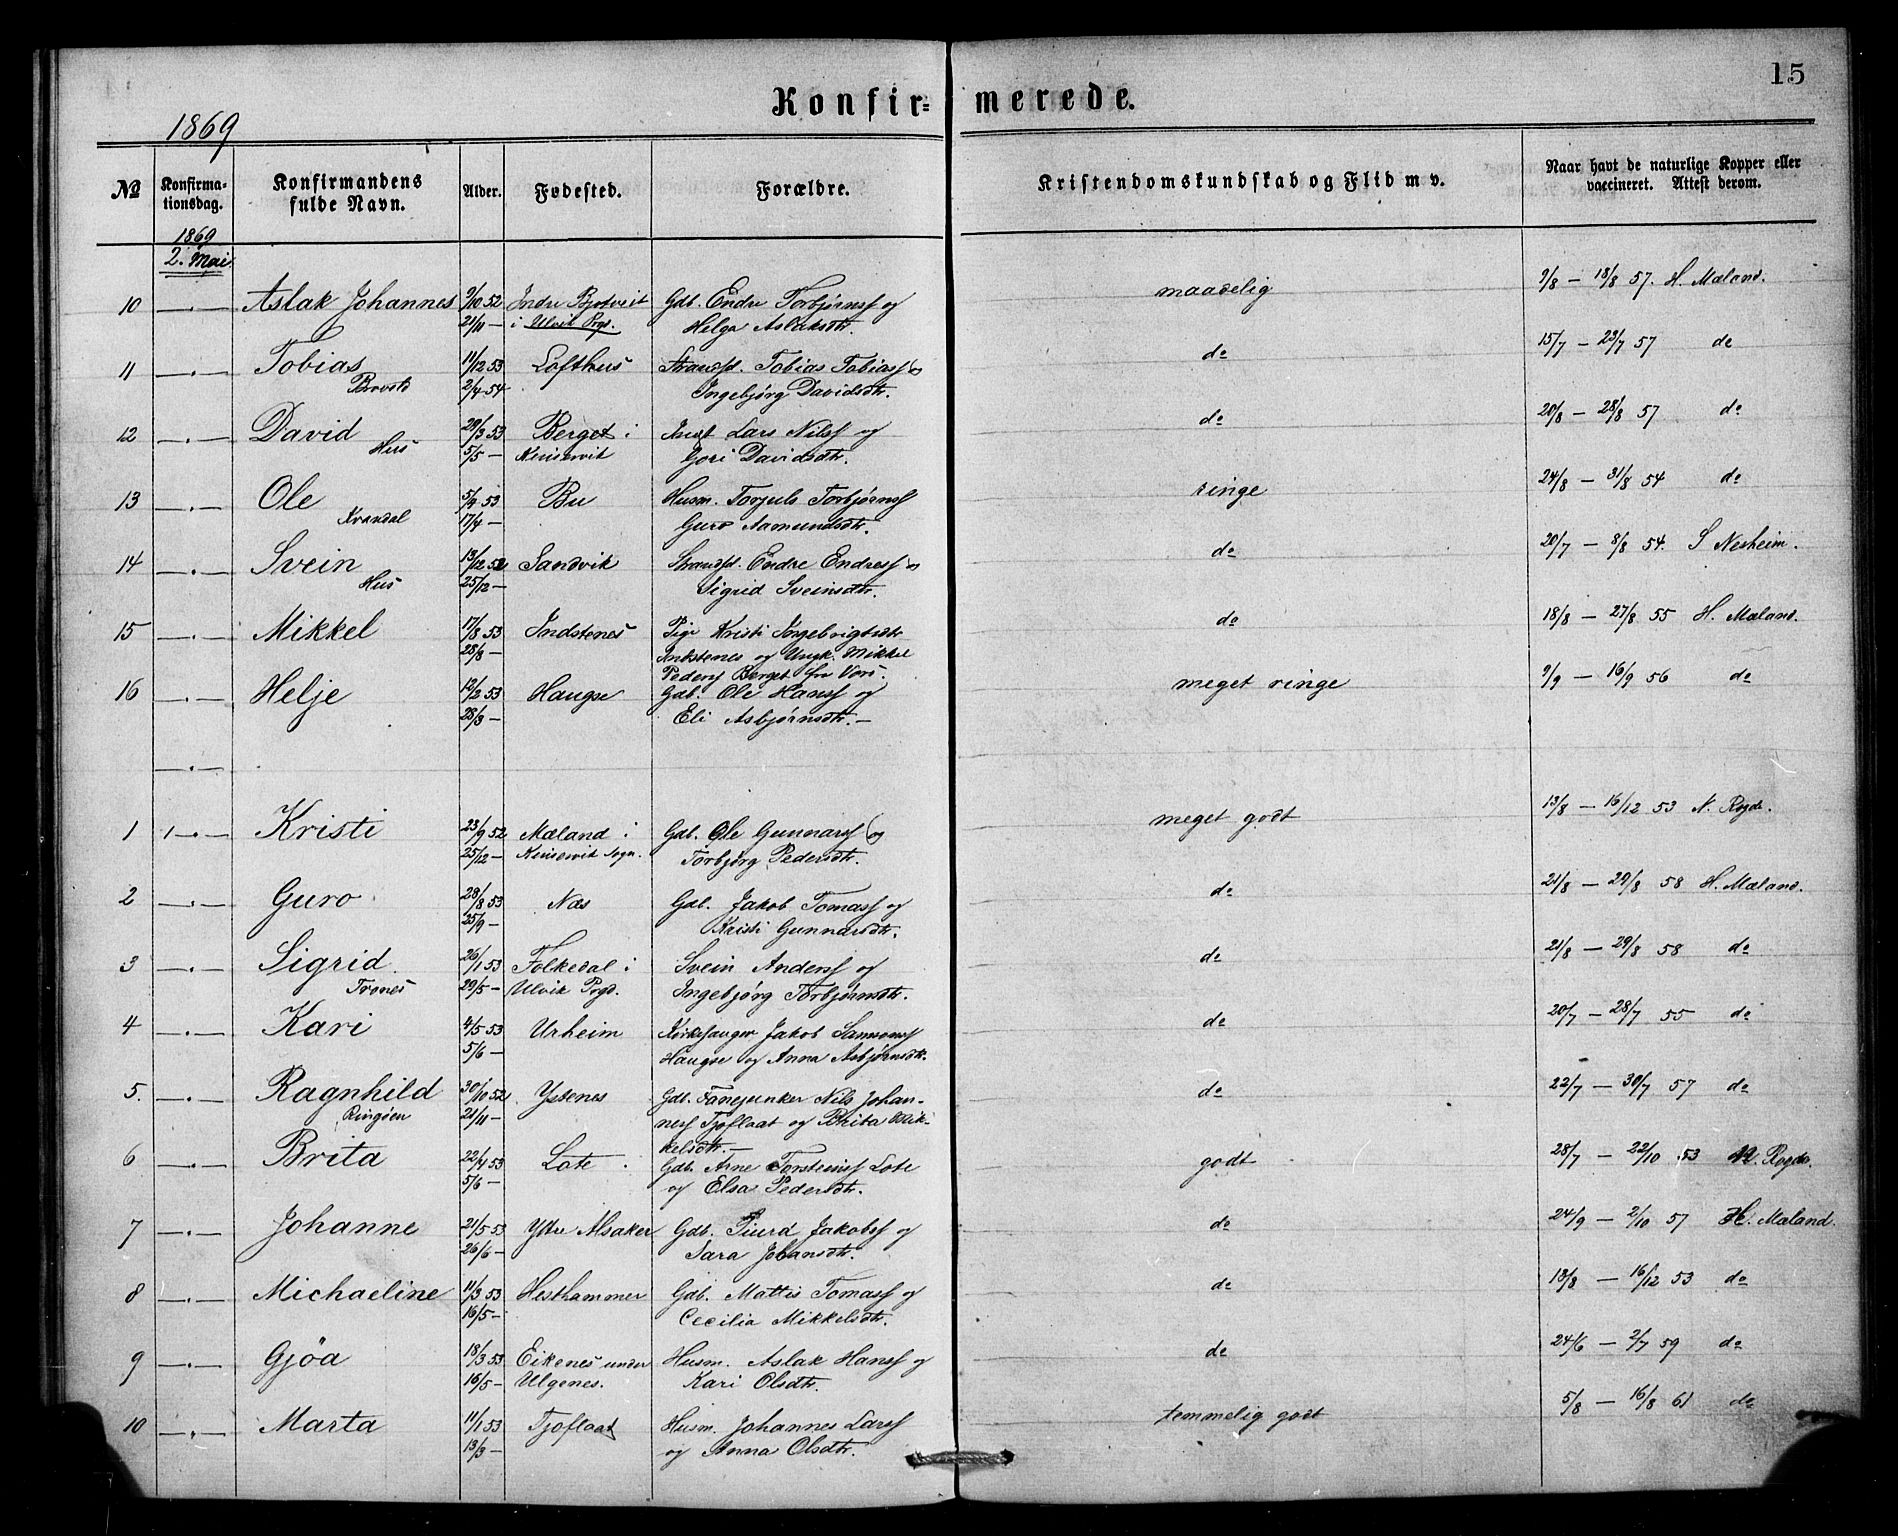 15
Konfir- merede.
1869
No Konfirmationsdag. Konfirmandens fulde Navn. Alder. Fødested. Forældre. Kristendomskundskab og Flid m v. Naar havt de naturlige Kopper eller vaccineret. Attest derom.
1869
2. Mai.
10 —.— Aslak Johannes 9/10 52 Indre Bjotveit Gdb. Endre Torbjørnss og maadelig 9/8 — 18/8 57. H. Mæland.
21/11 — i Ulvik Prgd. Helga Aslaksdtr.
11 —.— Tobias 11/12 53 Lofthus Strands. Tobias Tobiass og do 15/7 — 23/7 57 do
2/4 54 Ingebjørg Davidsdtr.
12 —.— David 29/3 53 Berget i Inds Lars Nilss og do 20/8 — 28/8 57 do
Hus 5/5 — Kinservik Gori Davidsdtr.
13 —.— Ole 5/9 53 Bu Husm. Torjuls Torbjørnss ringe 24/8 — 31/8 54 do
Kvandal 17/4 — Guro Aamundsdtr.
14 —.— Svein 13/12 52 Sandvik Strands. Endre Endress og do 20/7 — 8/8 54. S Nesheim.
Hus 25/12 — Sigrid Sveinsdtr.
15 —.— Mikkel 17/8 53 Indstenes Pige Kristi Ingebrigtsdtr do 18/8 — 27/8 55 H. Mæland.
28/8 — Indstenes og Ungk. Mikkel
Peders Berget fra Vors.
16 —.— Helje 12/2 53 Haugse Gdb. Ole Hanss og meget ringe 9/9 — 16/9 56 do
28/3 — Eli Asbjørnsdtr. —
—.—
1 —.— Kristi 23/9 52 Mæland i Gdb. Ole Gunnarss og meget godt 13/8 — 16/12 53 N. Rogde.
25/12 — Kinservik Sogn. Torbjørg Pedersdtr.
2 —.— Guro 28/8 53 Næs Gdb. Jakob Tomass og do 21/8 — 29/8 58 H. Mæland.
25/9 — Kristi Gunnarsdtr.
3 —.— Sigrid 26/1 53 Folkedal i Svein Anderss og do 21/8 — 29/8 58 do
Trones 29/5 — Ulvik Prgd. Ingebjørg Torbjørnsdtr.
4 —.— Kari 4/5 53 Urheim Kirkesanger Jakob Samsonss do 20/7 — 28/7 55 do
5/6 — Haugse og Anna Asbjørnsdtr.
5. —.— Ragnhild 30/10 52 Ystenes Gdb. Fanejunker Nils Johan- do 22/7 — 30/7 57 do
Ringøen 21/11 — ness Tjoflaat og Brita Mik-
kelsdtr. —
6 —.— Brita 22/4 53 Lote Gdb. Arne Torsteinss Lote godt 28/7 — 22/10 53 N. Rogde.
5/6 — og Elsa Pedersdtr.
7 —.— Johanne 21/5 53 Ytre Alsaker Gdb. Siurd Jakobss og do 24/9 — 2/10 57 H. Mæland.
26/6 — Sara Johansdtr.
8 —.— Michaeline 11/3 53 Hesthammer Gdb. Mattis Tomass og do 13/8 — 16/12 53 do
16/5 — Cecilia Mikkelsdtr.
9 —.— Gjøa 18/3 53 Eikenes under Husm. Aslak Hanss og do 24/6 — 2/7 59 do
16/5 — Ulgenes. Kari Olsdtr.
10 —.— Marta 11/1 53 Tjoflaat Husm. Johannes Larss temmelig godt 5/8 — 16/8 61 do
13/3 — og Anna Olsdtr.